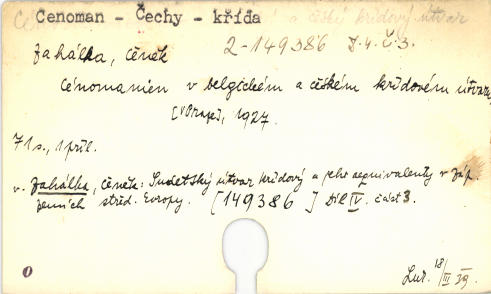 Cenoman - Čechy - křída
2-149386 D.4.Č.3.
Zahálka, Čeněk
Cénomanien v belgickém a českém křídovém útvaru
[V Praze], 1927.
71 s., 1 příl.
v. Zahálka, Čeněk: Sudetský útvar křídový a jeho aequivalenty v záp
zemích střed. Evropy. [149386] Díl IV. část 3.
0
18/III 39.